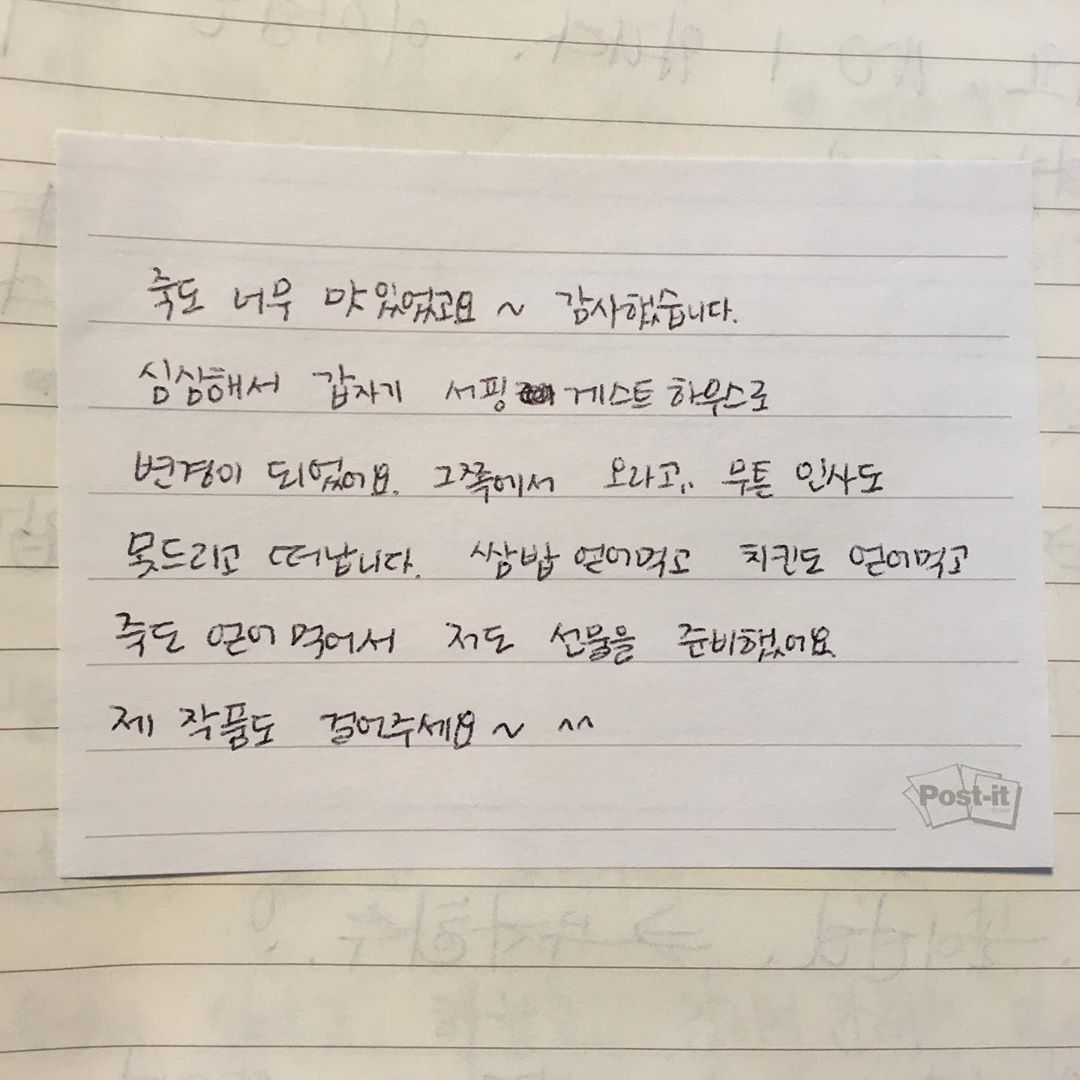 죽도 너무 맛있었고요 ~ 감사했습니다.
심심해서 갑자기 서핑 게스트하우스로
변경이 되었어요. 그쪽에서 오라고,, 무튼 인사도
못드리고 떠납니다. 쌈밥 얻어먹고 치킨도 얻어먹고
죽도 얻어먹어서 저도 선물을 준비했어요.
제 작품도 걸어주세요 ~ ^^
Post-it